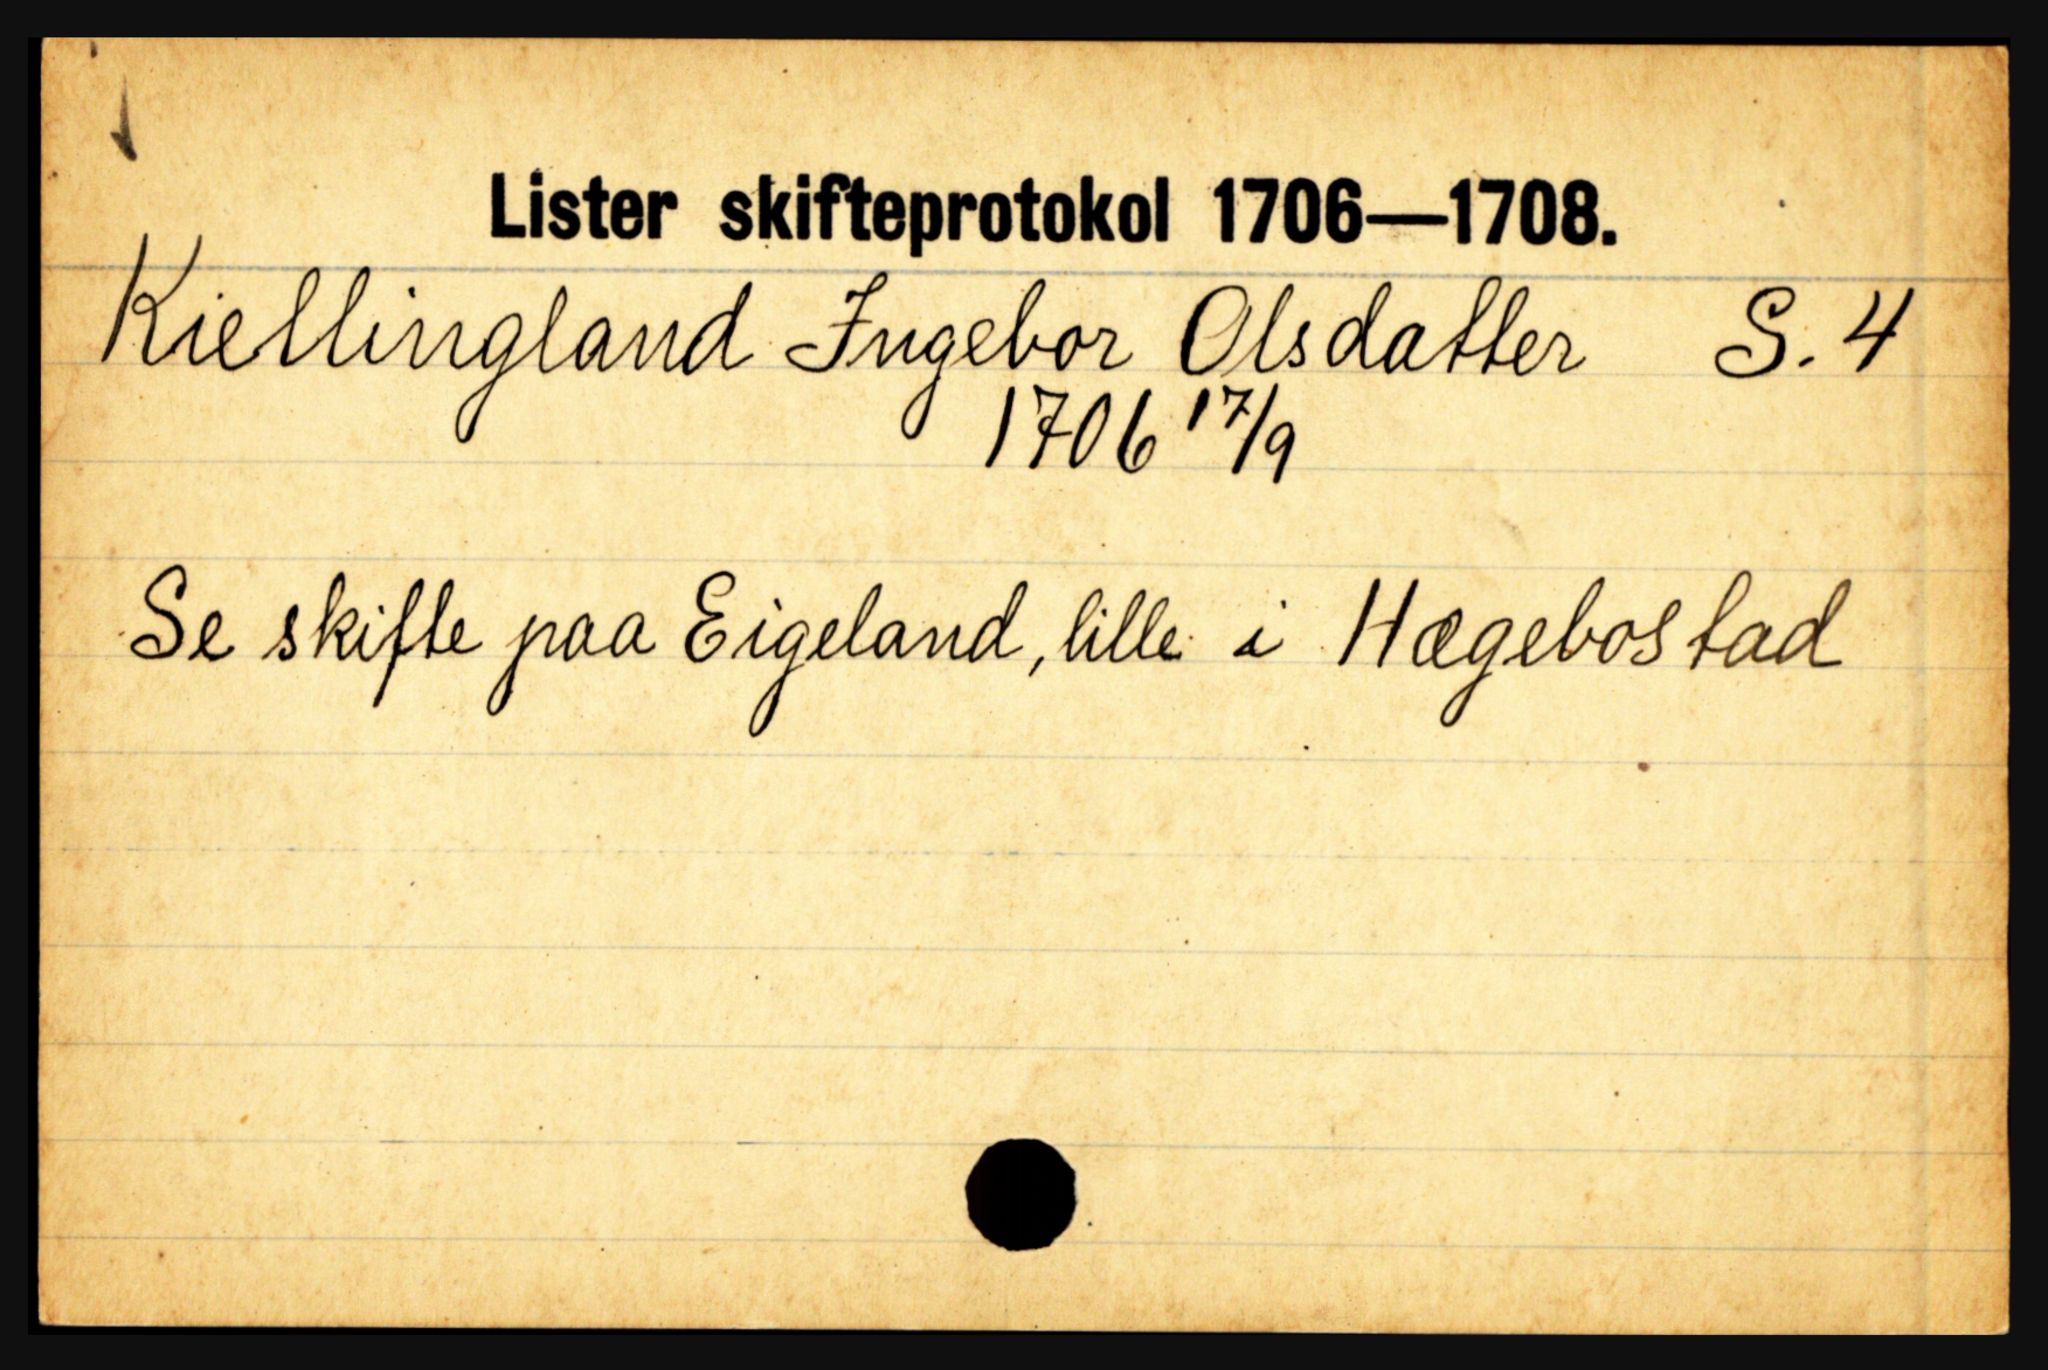 Lister skifteprotokol 1706—1708.
Kiellingland Ingebor Olsdatter S. 4
1706 17/9
Se skifte paa Eigeland, lille i Hægebostad